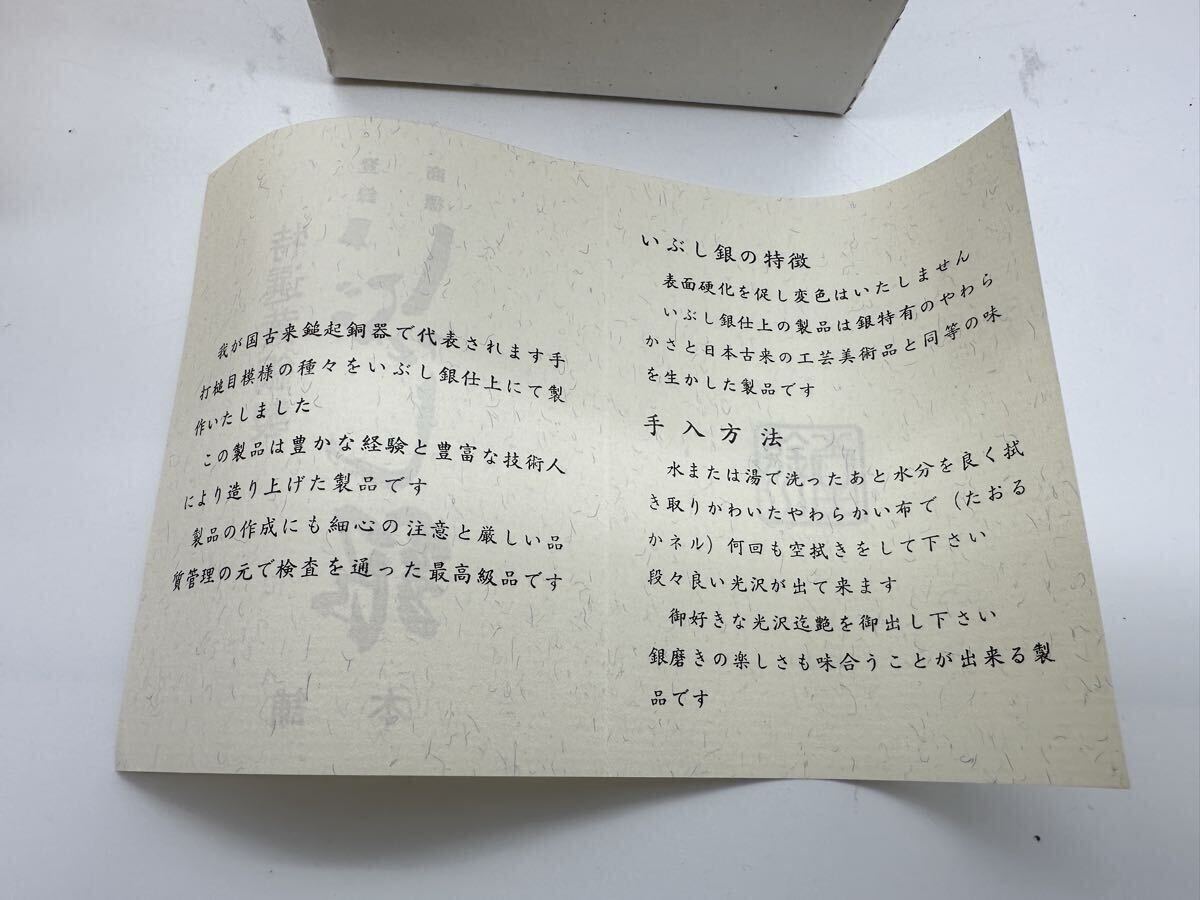 我が国古来鎚起銅器で代表されます手
打槌目模様の種々をいぶし銀仕上にて製
作いたしました
この製品は豊かな経験と豊富な技術人
により造り上げた製品です
製品の作成にも細心の注意と厳しい品
質管理の元で検査を通った最高級品です
いぶし銀の特徴
表面硬化を促し変色はいたしません
いぶし銀仕上の製品は銀特有のやわら
かさと日本古来の工芸美術品と同等の味
を生かした製品です
手入方法
水または湯で洗ったあと水分を良く拭
き取りかわいたやわらかい布で(たおる
かネル)何回も空拭きをして下さい
段々良い光沢が出て来ます
御好きな光沢迄艶を御出し下さい
銀磨きの楽しさも味合うことが出来る製
品です